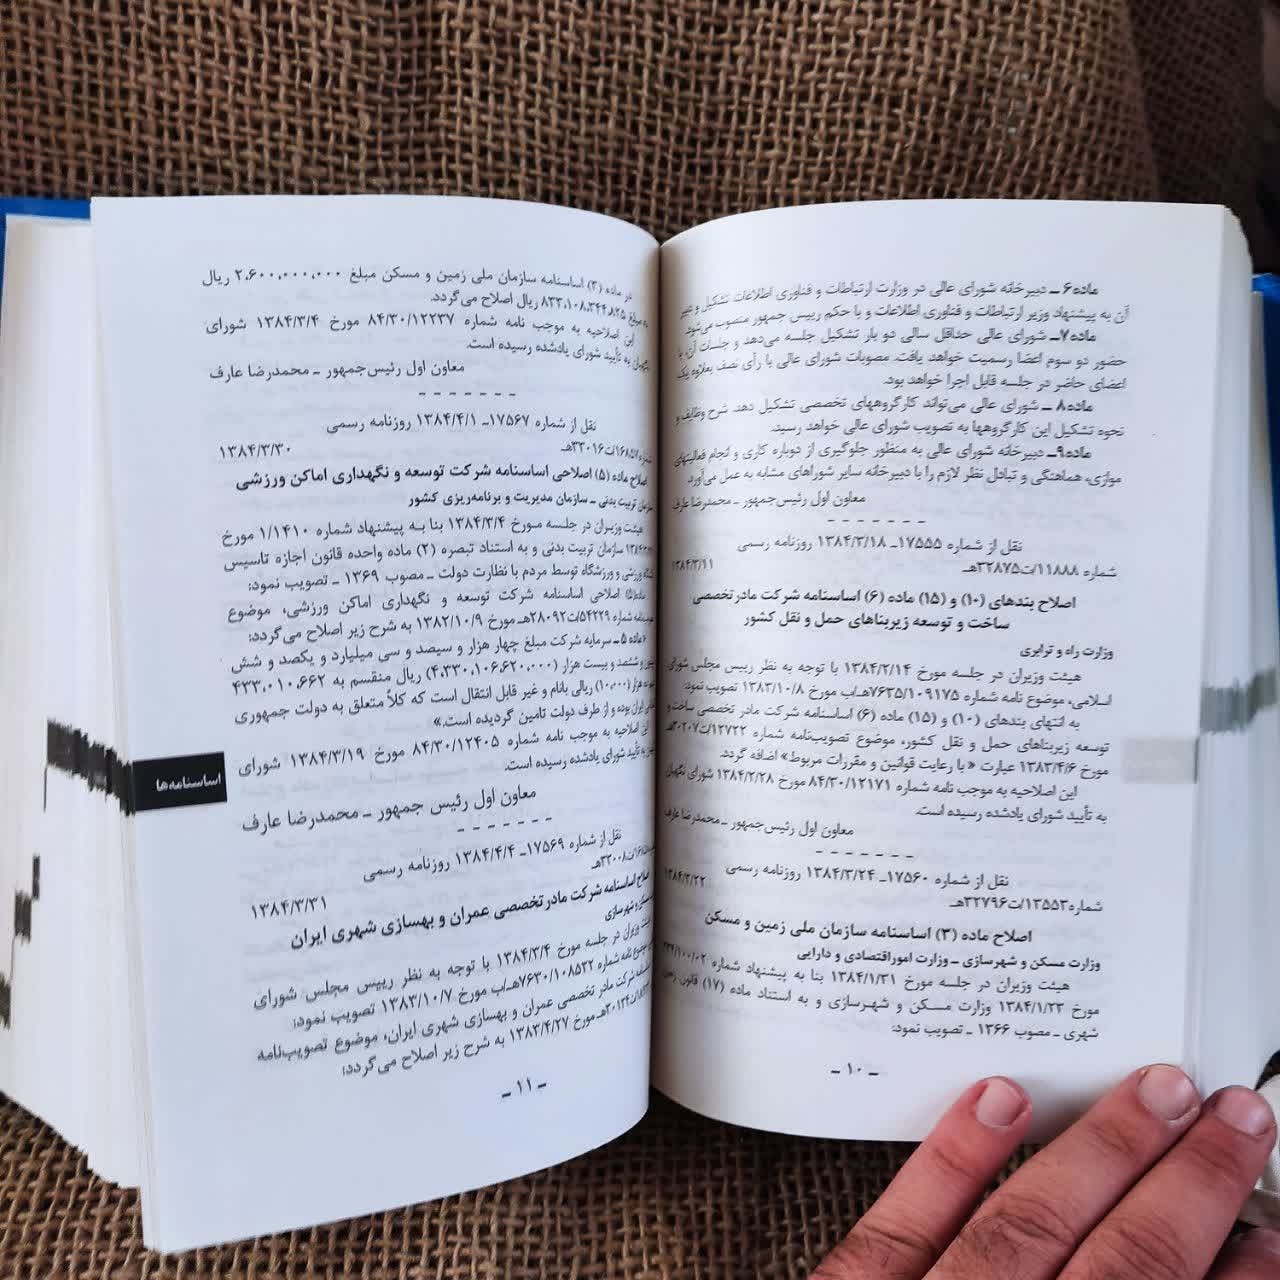 ماده۶ ـ دبیرخانه شورای عالی در وزارت ارتباطات و فناوری اطلاعات تشکیل و دبیر
آن به پیشنهاد وزیر ارتباطات و فناوری اطلاعات و با حکم رییس جمهور منصوب می‌شود.
ماده۷ـ شورای عالی حداقل سالی دو بار تشکیل جلسه می‌دهد و جلسات آن، با
حضور دو سوم اعضا رسمیت خواهد یافت. مصوبات شورای عالی با رأی نصف بعلاوه یک
اعضای حاضر در جلسه قابل اجرا خواهد بود.
ماده۸ ـ شورای عالی می‌تواند کارگروههای تخصصی تشکیل دهد. شرح وظایف و
نحوه تشکیل این کارگروهها به تصویب شورای عالی خواهد رسید.
ماده۹ـ دبیرخانه شورای عالی به منظور جلوگیری از دوباره کاری و انجام فعالیتهای
موازی، هماهنگی و تبادل نظر لازم را با دبیرخانه سایر شوراهای مشابه به عمل می‌آورد.
معاون اول رئیس‌جمهور ـ محمدرضا عارف
نقل از شماره ۱۷۵۵۵ـ ۱۳۸۴/۳/۱۸ روزنامه رسمی
شماره۱۱۸۸۸/ت۳۲۸۷۵هـ ۱۳۸۴/۳/۱۱
اصلاح بندهای (۱۰) و (۱۵) ماده (۶) اساسنامه شرکت مادر تخصصی
ساخت و توسعه زیربناهای حمل و نقل کشور
وزارت راه و ترابری
هیئت وزیران در جلسه مورخ ۱۳۸۴/۲/۱۴ با توجه به نظر رییس مجلس شورای
اسلامی، موضوع نامه شماره ۷۶۳۵/۱۰۹۱۷۵هـ/ب مورخ ۱۳۸۳/۱۰/۸ تصویب نمود:
به انتهای بندهای (۱۰) و (۱۵) ماده (۶) اساسنامه شرکت مادر تخصصی ساخت و
توسعه زیربناهای حمل و نقل کشور، موضوع تصویب‌نامه شماره ۱۲۷۲۲/ت۳۰۲۰۷هـ
مورخ ۱۳۸۳/۴/۶ عبارت « با رعایت قوانین و مقررات مربوط» اضافه گردد.
این اصلاحیه به موجب نامه شماره ۸۴/۳۰/۱۲۱۷۱ مورخ ۱۳۸۴/۲/۲۸ شورای نگهبان
به تأیید شورای یادشده رسیده است.
معاون اول رئیس‌جمهور ـ محمدرضا عارف
نقل از شماره ۱۷۵۶۰ـ ۱۳۸۴/۳/۲۴ روزنامه رسمی
شماره۱۳۵۵۳/ت۳۲۷۹۶هـ ۱۳۸۴/۳/۲۲
اصلاح ماده (۳) اساسنامه سازمان ملی زمین و مسکن
وزارت مسکن و شهرسازی ـ وزارت اموراقتصادی و دارایی
هیئت وزیران در جلسه مورخ ۱۳۸۴/۱/۳۱ بنا به پیشنهاد شماره ۱۰۰/۰۲/
مورخ ۱۳۸۴/۱/۲۳ وزارت مسکن و شهرسازی و به استناد ماده (۱۷) قانون زمین
شهری ـ مصوب ۱۳۶۶ ـ تصویب نمود:
ـ ۱۰ ـ
در ماده (۳) اساسنامه سازمان ملی زمین و مسکن مبلغ ۲،۶۰۰،۰۰۰،۰۰۰ ریال
به مبلغ ۸۳۳،۱۰۸،۳۴۴،۸۲۵ ریال اصلاح می‌گردد.
این اصلاحیه به موجب نامه شماره ۸۴/۳۰/۱۲۲۳۷ مورخ ۱۳۸۴/۳/۴ شورای
نگهبان به تأیید شورای یادشده رسیده است.
معاون اول رئیس‌جمهور ـ محمدرضا عارف
نقل از شماره ۱۷۵۶۷ـ ۱۳۸۴/۴/۱ روزنامه رسمی
ت۳۳۰۱۶هـ ۱۳۸۴/۳/۳۰
اصلاح ماده (۵) اصلاحی اساسنامه شرکت توسعه و نگهداری اماکن ورزشی
سازمان تربیت بدنی ـ سازمان مدیریت و برنامه‌ریزی کشور
هیئت وزیران در جلسه مورخ ۱۳۸۴/۳/۴ بنا به پیشنهاد شماره ۱/۱۴۱۰ مورخ
سازمان تربیت بدنی و به استناد تبصره (۲) ماده واحده قانون اجازه تاسیس
ورزشی و ورزشگاه توسط مردم با نظارت دولت ـ مصوب ۱۳۶۹ ـ تصویب نمود:
ماده(۵) اصلاحی اساسنامه شرکت توسعه و نگهداری اماکن ورزشی، موضوع
شماره ۵۴۲۲۹/ت۲۸۰۹۲هـ مورخ ۱۳۸۲/۱۰/۹ به شرح زیر اصلاح می‌گردد:
ماده ۵ ـ سرمایه شرکت مبلغ چهار هزار و سیصد و سی میلیارد و یکصد و شش
و ششصد و بیست هزار (۴،۳۳۰،۱۰۶،۶۲۰،۰۰۰) ریال منقسم به ۴۳۳،۰۱۰،۶۶۲
هزار (۱۰،۰۰۰) ریالی بانام و غیر قابل انتقال است که کلاً متعلق به دولت جمهوری
ایران بوده و از طرف دولت تامین گردیده است.»
این اصلاحیه به موجب نامه شماره ۸۴/۳۰/۱۲۴۰۵ مورخ ۱۳۸۴/۳/۱۹ شورای
به تأیید شورای یادشده رسیده است.
معاون اول رئیس جمهور ـ محمدرضا عارف
نقل از شماره ۱۷۵۶۹ـ ۱۳۸۴/۴/۴ روزنامه رسمی
ت۳۲۰۰۸هـ ۱۳۸۴/۳/۳۱
اصلاح اساسنامه شرکت مادر تخصصی عمران و بهسازی شهری ایران
مسکن و شهرسازی
هیئت وزیران در جلسه مورخ ۱۳۸۴/۳/۴ با توجه به نظر رییس مجلس شورای
موضوع نامه شماره ۷۶۳۰/۱۰۸۵۳۲هـ/ب مورخ ۱۳۸۳/۱۰/۷ تصویب نمود:
اساسنامه شرکت مادر تخصصی عمران و بهسازی شهری ایران، موضوع تصویب‌نامه
ت۳۰۱۳۴هـ مورخ ۱۳۸۳/۴/۲۷ به شرح زیر اصلاح می‌گردد:
ـ ۱۱ ـ
اساسنامه‌ها